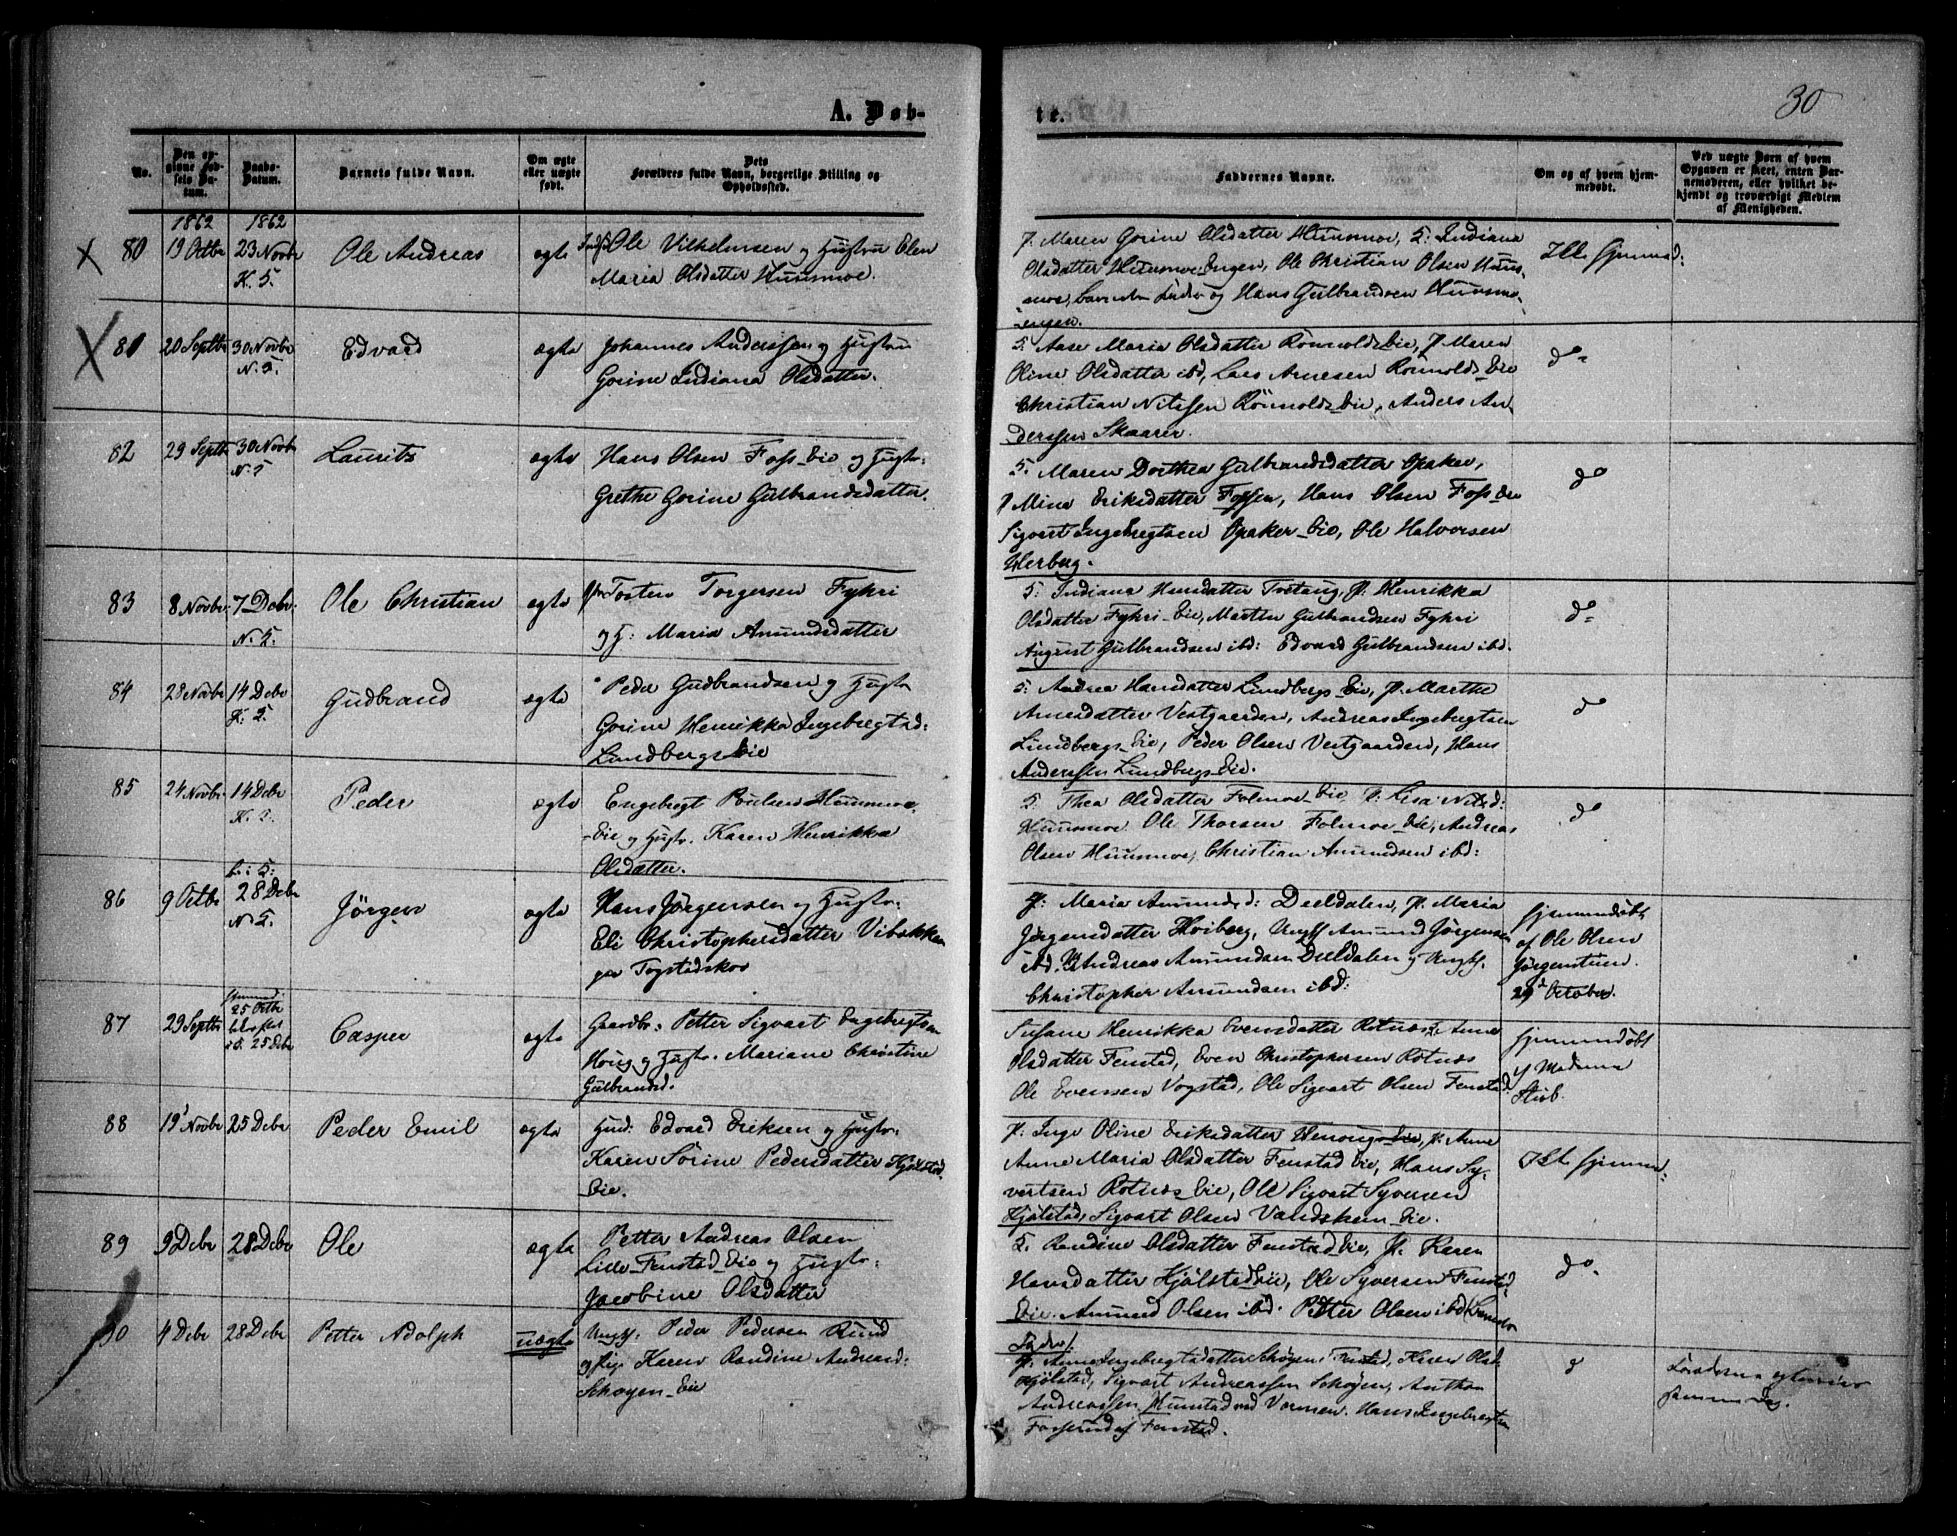 A. Døb-
te.
30
No.
Den op-
givne Fød-
sels Da-
tum.
Daabs-
Datum.
Barnets fulde Navn.
Om ægte
eller uægte
født.
Dets
Forældres fulde Navn, borgerlige Stilling og
Opholdssted.
Faddernes Navne.
Om og af hvem hjem-
medøbt.
Ved uægte Børn af hvem
Opgaven er skeet, enten Bar-
nemoderen, eller hvilket be-
kjendt og troværdigt Medlem
af Menigheden.
1862 1862
80 19 Octbr 23 Novbr Ole Andreas ægte Ole Vilhelmsen og Hustru Elen
K. 5. Maria Olsdatter Huusmoe.
F. Maren Gorine Olsdatter Huusmoe, S: Indiana
Olsdatter Huusmoe-Engen, Ole Christian Olsen Huus-
moe, og Hans Gulbrandsen Huusmo-
engen.
Ikke hjemmed:
81 20 Septbr 30 Novbr Edvard ægte Johannes Anderssen og Hustru
N. S. Gorine Indiana Olsdatter.
S. Aase Maria Olsdatter Römolds Eie, F Maren
Oline Olsdatter ibd, Lars Arnesen Römolds Eie
Christian Nilssen Römolds Eie, Anders An-
derssen Skaarer.
do
82 29 Septbr 30 Novbr Lauritz ægte Hans Olsen Foss Eie og Hustr:
N. S Grethe Gorine Gulbrandsdatter.
S. Maren Dorthea Gulbrandsdatter Opaker,
F Mina Eriksdatter Fossen, Hans Olsen Foss Eie
Sigvart Ingebregtsen Opaker Eie, Ole Halvorsen
Herberg.
do
83 8 Novbr. 7 Debr. Ole Christian ægte Tosten Torgersen Fykri
N. S. og H: Maria Amundsdatter
S. Indiana Hansdatter Tvetaug, F. Henrikka
Olsdatter Fykri Eie, Martin Gulbrandsen Fykri
August Gulbrandsen ibd: Edvard Gulbrandsen ibd.
do
84 28 Novbr 14 Debr Gudbrand ægte Peder Gudbrandsen og Hustr
K. S. Gorine Henrikka Ingebregtsd:
Lundbergs Eie
S. Andrea Hansdatter Lundbergs Eie, F. Marthe
Arnesdatter Vestgaarden, Andreas Ingebregtsen
Lundbergs Eie, Peder Olsen Vestgaarden, Hans
Anderssen Lundbergs Eie.
do
85 24 Novbr 14 Debr Peder ægte Engebregt Poulsen Huusmoe
Eie og Hustr. Karen Henrikka
Olsdatter.
S. Thea Olsdatter Folmoe Eie, F: Lisa Nilsd:
Huusmoe. Ole Thorsen Folmoe Eie, Andreas
Olsen Huusmoe, Christian Amundsen ibd:
do
86 9 Octbr 28 Debr Jörgen ægte Hans Jörgensen og Hustr.
N. S. Eli Christophersdatter Vibækken
Togstadskov
F: Maria Amundsd: Deeldalen, F. Maria
Jörgensdatter Hoiberg, Ungk Amund Jörgensen
ibd. Andreas Amundsen Deeldalen og Ungk.
Christopher Amundsen ibd:
hjemmedöbt
af Ole Olsen
Jörgentuen.
29 October.
87 29 Septbr 25 Octbr
25 Debr Casper ægte Gaardbr: Petter Sigvart Engebregtsen
Houg og Hustr. Mariane Christine
Gulbrandsd.
Susane Henrikka Evensdatter Rotnes, Anne
Olsdatter Fenstad, Even Christophersen Rotnes
Ole Evenssen Vogstad, Ole Sigvart Olsen Fenstad.
hjemmedöbt
af Madame
88 19 Novbr 25 Debr Peder Emil ægte Hus: Edvard Eriksen og Hustr.
Karen Sörine Pedersdatter Hjölstad
Eie.
F: Inge Oline Eriksdatter Henoug Eie, F. Anne
Anne Maria Olsdatter Fenstad Eie, Hans Sy-
vertsen Rotnes Eie, Ole Sigvart Syversen
Hjölstad, Sigvart Olsen Eie.
Ikke hjemmed:
89 9 Debr 28 Debr Ole ægte Petter Andreas Olsen
Lille-Fenstad Eie og Hustr:
Jacobine Olsdatter
S. Randine Olsdatter Fenstad Eie, F: Karen
Hansdatter Hjölstad Eie, Ole Syversen Fenstad
Eie. Amund Olsen ibd: Petter Olsen ibd
do
90 4 Debr 28 Debr Petter Adolph uægte Ungk. Peder Pedersen Ruud
og Pig: Karen Randine Andreasd:
Schøyen Eie
F: Anne Ingebregtsdatter Schøyen, Fenstad, Karen Olsd
Hjölstad, Sigvart Andreassen Schøyen, Anthon
Andreassen Huustad ved Vormen. Hans Ingebregtsen
Fosserud af Fenstad.
do
samme Dag.